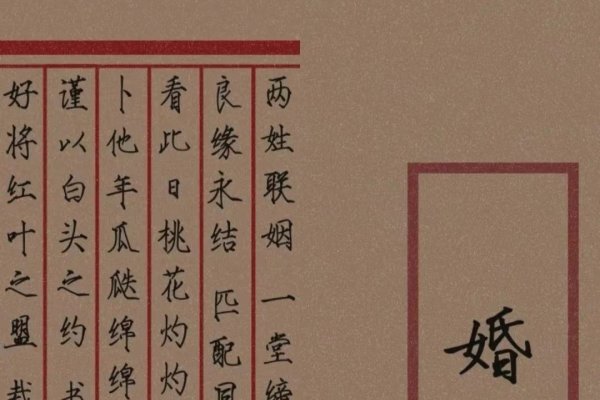 两姓联姻 一堂缔
良缘永结 匹配同
看此日桃花灼灼
卜他年瓜瓞绵绵
谨以白头之约 书
好将红叶之盟 载
婚